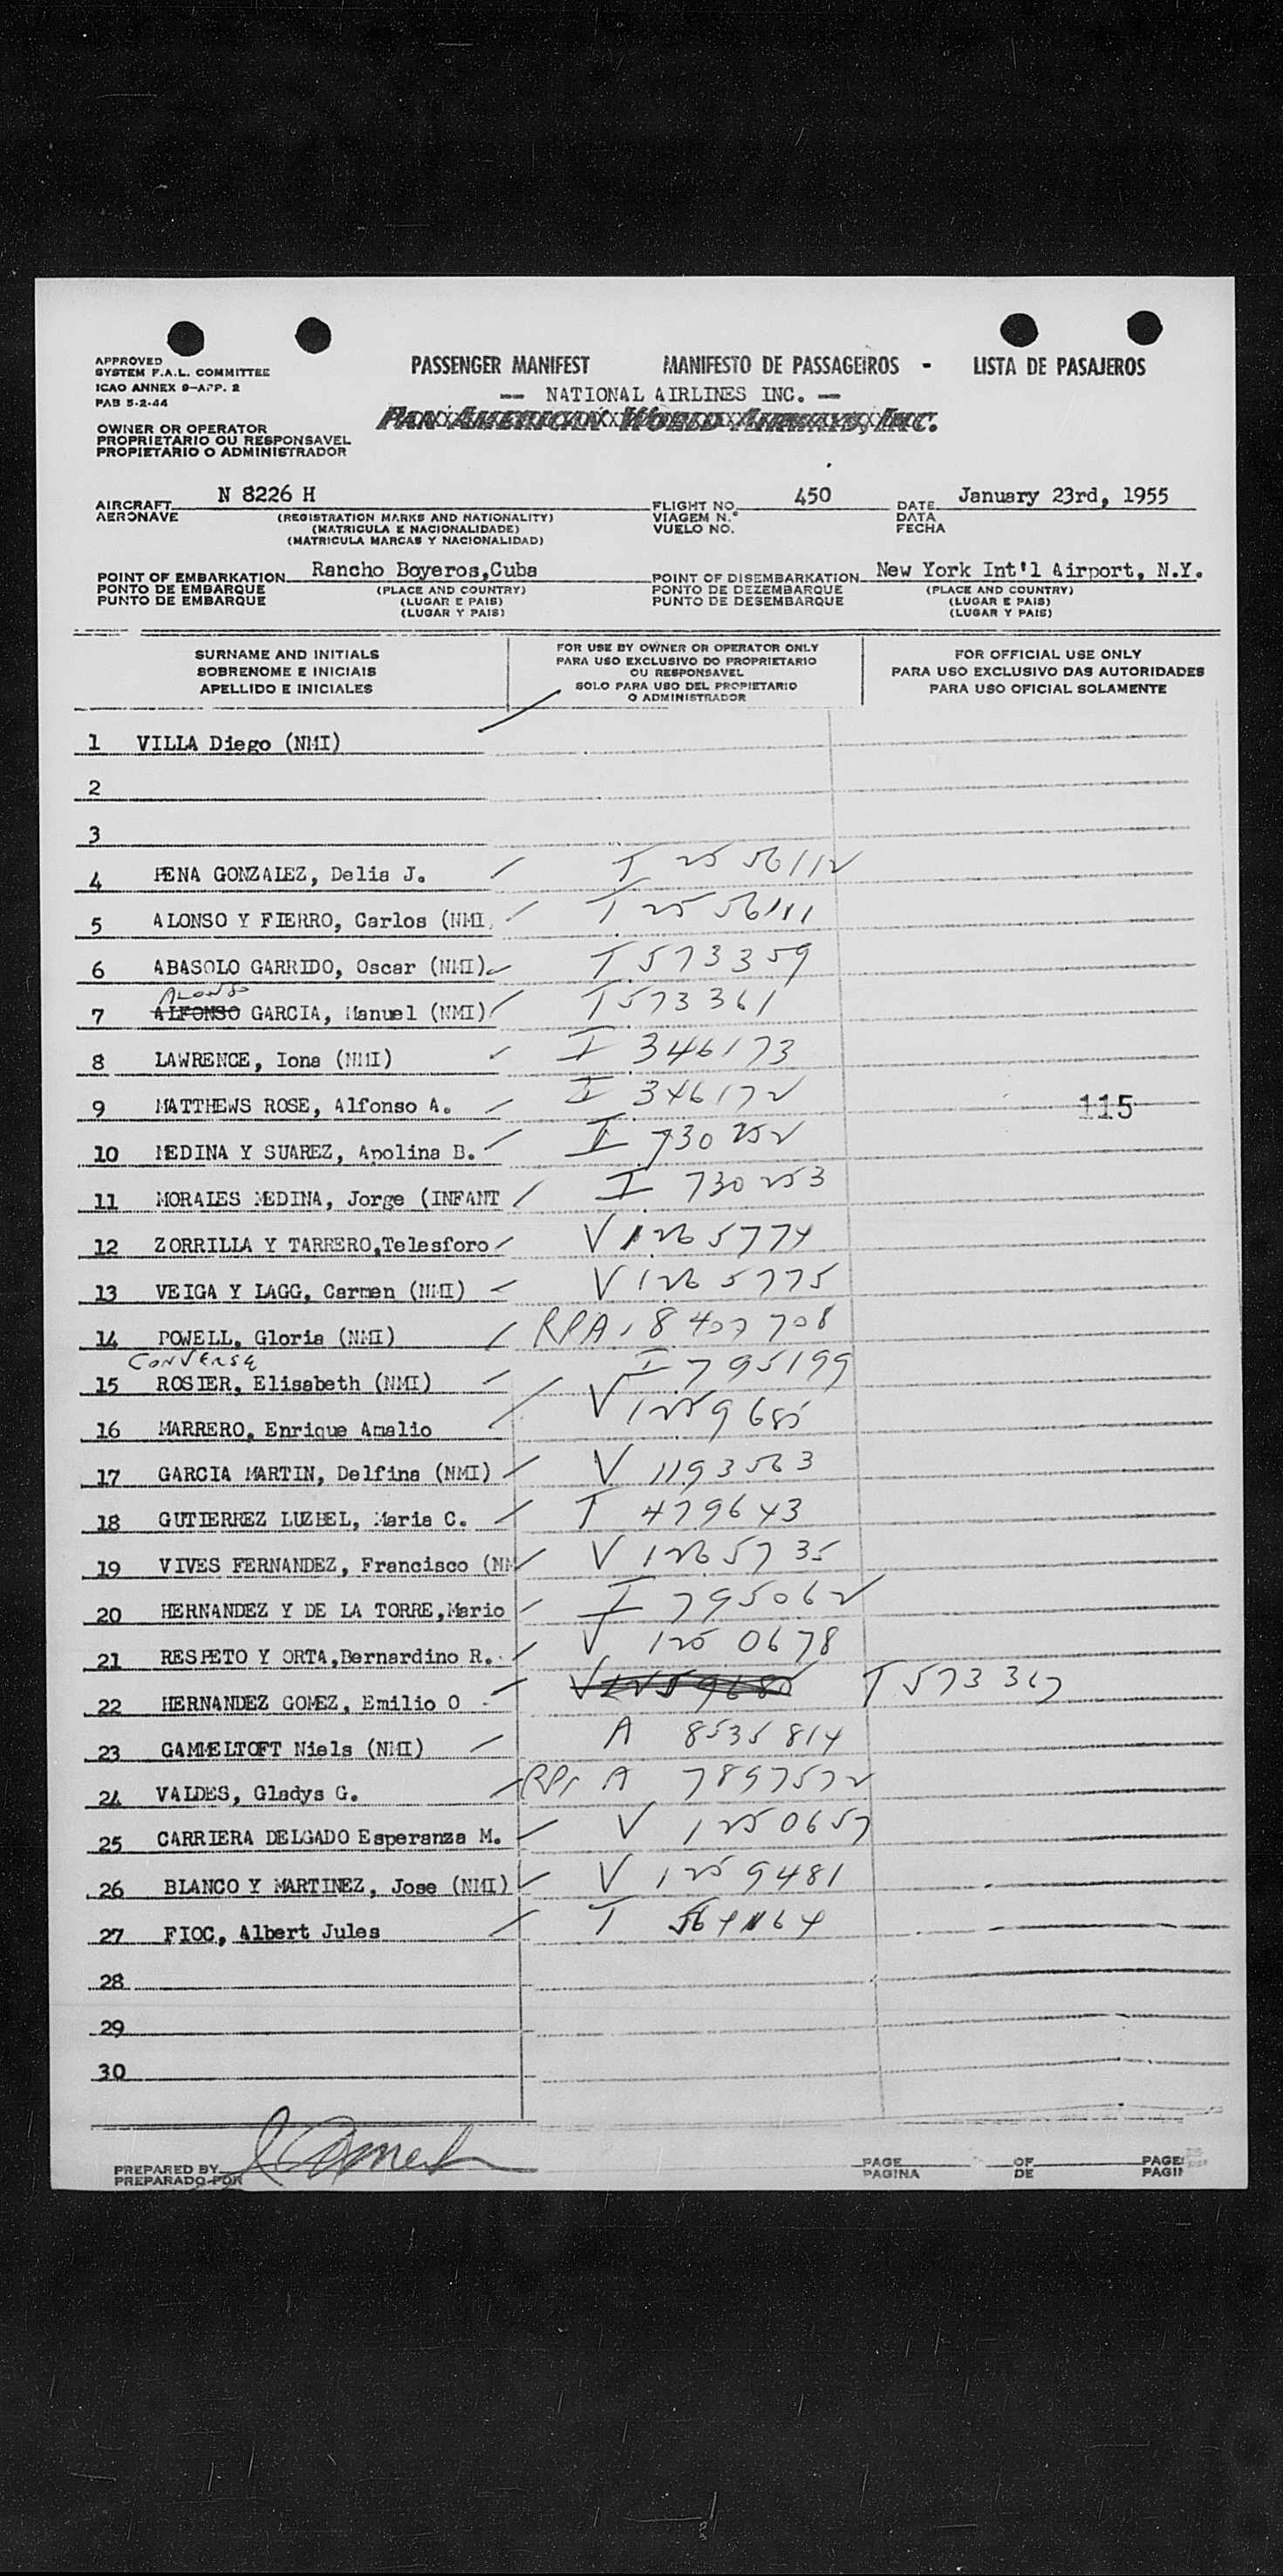 APPROVED
SYSTEM F.A.L. COMMITTEE
ICAO ANNEX 9-APP. 2
PAB 5-2-44
PASSENGER MANIFEST MANIFESTO DE PASSAGEIROS - LISTA DE PASAJEROS
-- NATIONAL AIRLINES INC. --
PAN AMERICAN WORLD AIRWAYS, INC.
OWNER OR OPERATOR
PROPRIETARIO OU RESPONSAVEL
PROPIETARIO O ADMINISTRADOR
AIRCRAFT N 8226 H FLIGHT NO. 450 DATE January 23rd, 1955
AERONAVE (REGISTRATION MARKS AND NATIONALITY) VIAGEM N.° DATA
(MATRICULA E NACIONALIDADE) VUELO NO. FECHA
(MATRICULA MARCAS Y NACIONALIDAD)
POINT OF EMBARKATION Rancho Boyeros,Cuba POINT OF DISEMBARKATION New York Int'l Airport, N.Y.
PONTO DE EMBARQUE (PLACE AND COUNTRY) PONTO DE DEZEMBARQUE (PLACE AND COUNTRY)
PUNTO DE EMBARQUE (LUGAR E PAIS) PUNTO DE DESEMBARQUE (LUGAR E PAIS)
(LUGAR Y PAIS) (LUGAR Y PAIS)
SURNAME AND INITIALS
SOBRENOME E INICIAIS
APELLIDO E INICIALES
FOR USE BY OWNER OR OPERATOR ONLY
PARA USO EXCLUSIVO DO PROPRIETARIO
OU RESPONSAVEL
SOLO PARA USO DEL PROPIETARIO
O ADMINISTRADOR
FOR OFFICIAL USE ONLY
PARA USO EXCLUSIVO DAS AUTORIDADES
PARA USO OFICIAL SOLAMENTE
1 VILLA Diego (NMI)
2
3
4 PENA GONZALEZ, Delia J. T 2556112
5 ALONSO Y FIERRO, Carlos (NMI, T 2556111
6 ABASOLO GARRIDO, Oscar (NMI) T 573359
ALONSO
7 ALFONSO GARCIA, Manuel (NMI) T 573361
8 LAWRENCE, Iona (NMI) I 346173
9 MATTHEWS ROSE, Alfonso A. I 346172 115
10 MEDINA Y SUAREZ, Apolina B. I 730252
11 MORALES MEDINA, Jorge (INFANT I 730253
12 ZORRILLA Y TARRERO,Telesforo V 1265774
13 VEIGA Y LAGG, Carmen (NMI) V 1265775
14 POWELL, Gloria (NMI) RPA 8407708
CONVERSE
15 ROSIER, Elisabeth (NMI) I 795199
16 MARRERO, Enrique Amalio V 1259685
17 GARCIA MARTIN, Delfina (NMI) V 1193563
18 GUTIERREZ LUZBEL, Maria C. T 479643
19 VIVES FERNANDEZ, Francisco (NM V 1265735
20 HERNANDEZ Y DE LA TORRE,Mario I 795062
21 RESPETO Y ORTA,Bernardino R. V 1250678
22 HERNANDEZ GOMEZ, Emilio O T 573367
23 GAMMELTOFT Niels (NMI) A 8535814
24 VALDES, Gladys G. A 7897572
25 CARRIERA DELGADO Esperanza M. V 1250657
26 BLANCO Y MARTINEZ, Jose (NMI) V 1259481
27 FIOC, Albert Jules T
28
29
30
PREPARED BY PAGE OF PAGE
PREPARADO POR PAGINA DE PAGI